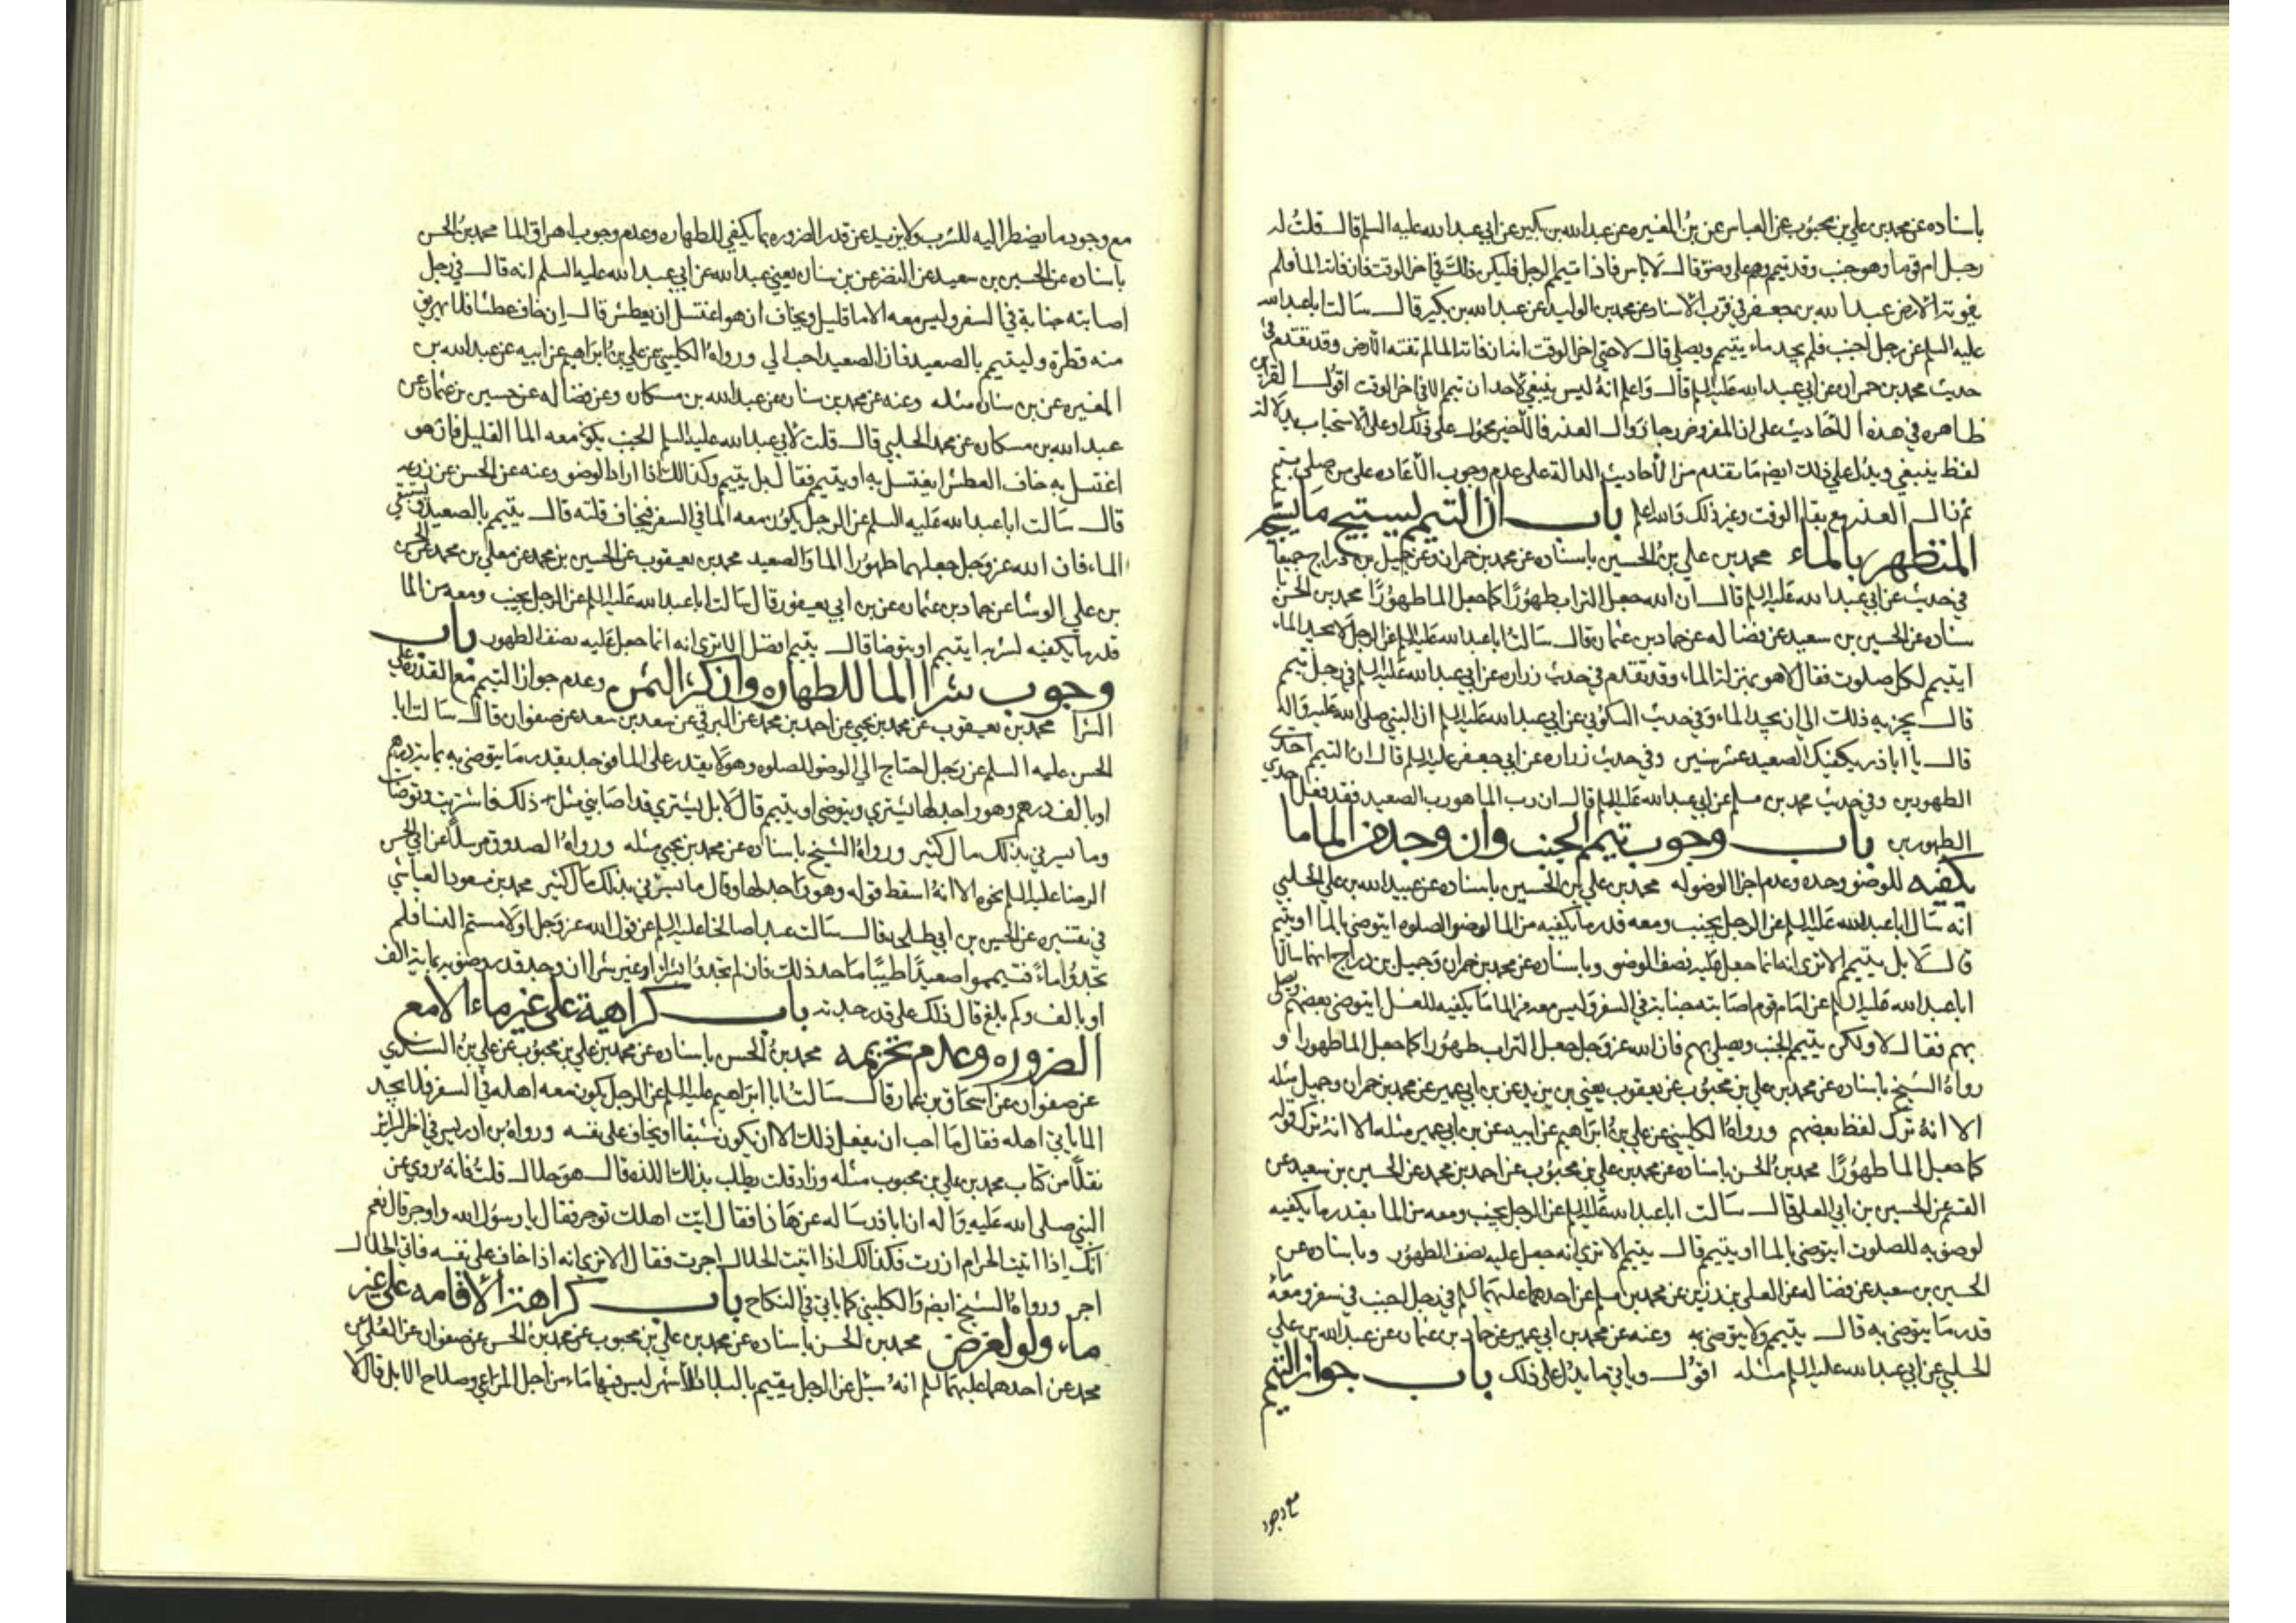 باسناده عن محمد بن علي بن محبوب عن العباس عن بن المغيره عن عبد الله بن بكير عن ابي عبد الله عليه السلم قال قلت له
رجل ام قوما وهو جنب وقد تيمم وهم على وضو قال لا باس فاذا تيمم الرجل فليكن ذلك في اخر الوقت فان فاته الما فلم
يفوته الارض عبد الله بن جعفر في قرب الاسناد عن محمد بن الوليد عن عبد الله بن بكير قال سالت ابا عبد الله
عليه السلم عن رجل اجنب فلم يجد ماء يتيمم ويصلي قال لا حتى اخر الوقت انه ان فاته الما لم تفته الارض وقد تقدم في
حديث محمد بن حمران عن ابي عبد الله عليه السلم قال واعلم انه ليس ينبغي لاحد ان تيمم الا في اخر الوقت اقول القراين
ظاهره في هذه الاحاديث على ان المفروض رجا زوال العذر فالاخير محمول على ذلك او على الاستحباب بدلالة
لفظ ينبغي ويدل على ذلك ايضا ما تقدم من الاحاديث الدالة على عدم وجوب الاعاده على من صلى بتيمم
ثم زال العذر مع بقا الوقت وغير ذلك والله اعلم باب ان التيمم يستبيح ما يستبيحه
المتطهر بالماء محمد بن علي بن الحسين باسناده عن محمد بن حمران وعن جميل بن دراج جميعا
في حديث عن ابي عبد الله عليه السلم قال ان الله جعل التراب طهورا كما جعل الما طهورا محمد بن الحسن
سناده عن الحسين بن سعيد عن فضاله عن حماد بن عثمان قال سالت ابا عبد الله عليه السلم عن الرجل لا يجد الماء
ايتيمم لكل صلوت فقال لا هو بمنزلة الماء وقد تقدم في حديث زراره عن ابي عبد الله عليه السلم في رجل تيمم
قال يجزيه ذلك الى ان يجد الماء وفي حديث السكوني عن ابي عبد الله عليه السلم ان النبي صلى الله عليه واله
قال يا ابا ذر يكفيك الصعيد عشر سنين وفي حديث زراره عن ابي جعفر عليه السلم قال ان التيمم احدى
الطهورين وفي حديث محمد بن مسلم عن ابي عبد الله عليه السلم قال ان رب الما هو رب الصعيد فقد فعل احدى
الطهورين باب وجوب تيمم الجنب وان وجد من الما ما
يكفيه للوضو وحده وعدم اجزا الوضو له محمد بن علي بن الحسين باسناده عن عبيد الله بن علي الحلبي
انه سال ابا عبد الله عليه السلم عن الرجل يجنب ومعه قدر ما يكفيه من الما لوضو الصلوه ايتوضى بالما او يتيمم
قال لا بل يتيمم الا ترى انه انما جعل عليه نصف الوضو وباسناده عن محمد بن حمران وجميل بن دراج انهما سالا
ابا عبد الله عليه السلم عن امام قوم اصابته جنابة في السفر وليس معه من الما ما يكفيه للغسل ايتوضى بعضهم ويصلي
بهم فقال لا ولكن يتيمم الجنب ويصلي بهم فان الله عز وجل جعل التراب طهورا كما جعل الما طهورا و
رواه الشيخ باسناده عن محمد بن علي بن محبوب عن يعقوب يعني بن يزيد عن بن ابي عمير عن محمد بن حمران وجميل مثله
الا انه ترك لفظ بعضهم ورواه الكليني عن علي بن ابراهيم عن ابيه عن بن ابي عمير مثله الا انه ترك قوله
كما جعل الما طهورا محمد بن الحسن باسناده عن محمد بن علي بن محبوب عن احمد بن محمد عن الحسين بن سعيد عن
القسم عن الحسين بن ابي العلا قال سالت ابا عبد الله عليه السلم عن الرجل يجنب ومعه من الما بقدر ما يكفيه
لوضوئه للصلوت ايتوضى بالما او يتيمم قال يتيمم الا ترى انه جعل عليه نصف الطهور وباسناده عن
الحسين بن سعيد عن فضاله عن العلى بن رزين عن محمد بن مسلم عن احدهما عليهما السلم في رجل اجنب في سفر ومعه
قدر ما يتوضى به قال يتيمم ولا يتوضى به وعنه عن محمد بن ابي عمير عن حماد بن عثمان عن عبد الله بن علي
الحلبي عن ابي عبد الله عليه السلم مثله اقول وياتي ما يدل على ذلك باب جواز التيمم
مع وجود
مع وجود ما يضطر اليه للشرب ولا يزيد عن قدر الضروره بما يكفي للطهاره وعدم وجوب اهراق الما محمد بن الحسن
باسناده عن الحسين بن سعيد عن النضر عن بن سنان يعني عبد الله عن ابي عبد الله عليه السلم انه قال في رجل
اصابته جنابة في السفر وليس معه الا ما قليل ويخاف ان هو اغتسل ان يعطش قال ان خاف عطشا فلا يهريق
منه قطرة وليتيمم بالصعيد فان الصعيد احب الي ورواه الكليني عن علي بن ابراهيم عن ابيه عن عبد الله بن
المغيره عن بن سنان مثله وعنه عن محمد بن سنان عن عبد الله بن مسكان وعن فضاله عن حسين بن عثمان عن
عبد الله بن مسكان عن محمد الحلبي قال قلت لابي عبد الله عليه السلم الجنب يكون معه الما القليل فان هو
اغتسل به خاف العطش ايغتسل به او يتيمم فقال بل يتيمم وكذالك اذا اراد الوضو وعنه عن الحسن عن زرعه
قال سالت ابا عبد الله عليه السلم عن الرجل يكون معه الما في السفر فيخاف قلته قال يتيمم بالصعيد ويستبقي
الماء فان الله عز وجل جعلهما طهورا الما والصعيد محمد بن يعقوب عن الحسين بن محمد عن معلى بن محمد عن الحسن
بن علي الوشا عن حماد بن عثمان عن بن ابي يعفور قال سالت ابا عبد الله عليه السلم عن الرجل يجنب ومعه من الما
قدر ما يكفيه لشربه ايتيمم او يتوضا قال يتيمم افضل الا ترى انه انما جعل عليه نصف الطهور باب
وجوب شرا الما للطهاره وان كثر الثمن وعدم جواز التيمم مع القدره على
الشرا محمد بن يعقوب عن محمد بن يحيى عن احمد بن محمد عن البرقي عن سعد بن سعد عن صفوان قال سالت ابا
الحسن عليه السلم عن رجل احتاج الى الوضو للصلوه وهو لا يقدر على الما فوجد بقدر ما يتوضى به بمايه درهم
او بالف درهم وهو واجد لها يشتري ويتوضى او يتيمم قال لا بل يشتري قد اصابني مثل ذلك فاشتريت وتوضات
وما سرني بذلك مال كثير ورواه الشيخ باسناده عن محمد بن يحيى مثله ورواه الصدوق مرسلا عن ابي الحسن
الرضا عليه السلم نحوه الا انه اسقط قوله وهو واجد لها وقال ما يسرني بذلك مال كثير محمد بن مسعود العياشي
في تفسيره عن الحسين بن ابي طلحه قال سالت عبدا صالحا عليه السلم عن قول الله عز وجل او لامستم النسا فلم
تجدوا ماء فتيمموا صعيدا طيبا ما حد ذلك فان لم تجدوا بشرا او غير شرا ان وجد قدر وضوئه بمايه الف
او بالف وكم بلغ قال ذلك على قدر جدته باب كراهية على غير ماء الا مع
الضروره وعدم تحريمه محمد بن الحسن باسناده عن محمد بن علي بن محبوب عن علي بن السندي
عن صفوان عن اسحاق بن عمار قال سالت ابا ابراهيم عليه السلم عن الرجل يكون معه اهله في السفر فلا يجد
الما ياتي اهله فقال ما احب ان يفعل ذلك الا ان يكون شبقا او يخاف على نفسه ورواه بن ادريس في اخر السرائر
نقلا من كتاب محمد بن علي بن محبوب مثله وزاد قلت يطلب بذلك اللذه قال هو حلال قلت فانه روي عن
النبي صلى الله عليه واله ان ابا ذر ساله عن هاذا فقال ايت اهلك توجر فقال يا رسول الله واوجر قال نعم
انك اذا اتيت الحرام ازرت فكذالك اذا اتيت الحلال اجرت فقال الا ترى انه اذا خاف على نفسه فاتى الحلال
اجر ورواه الشيخ ايضا والكليني كما ياتي في النكاح باب كراهة الاقامه على غير
ماء ولو لغرض محمد بن الحسن باسناده عن محمد بن علي بن محبوب عن محمد بن الحسن عن صفوان عن العلى عن
محمد عن احدهما عليهما السلم انه سئل عن الرجل يقيم بالبلاد الاشهر ليس فيها ماء من اجل المراعي وصلاح الابل قال لا